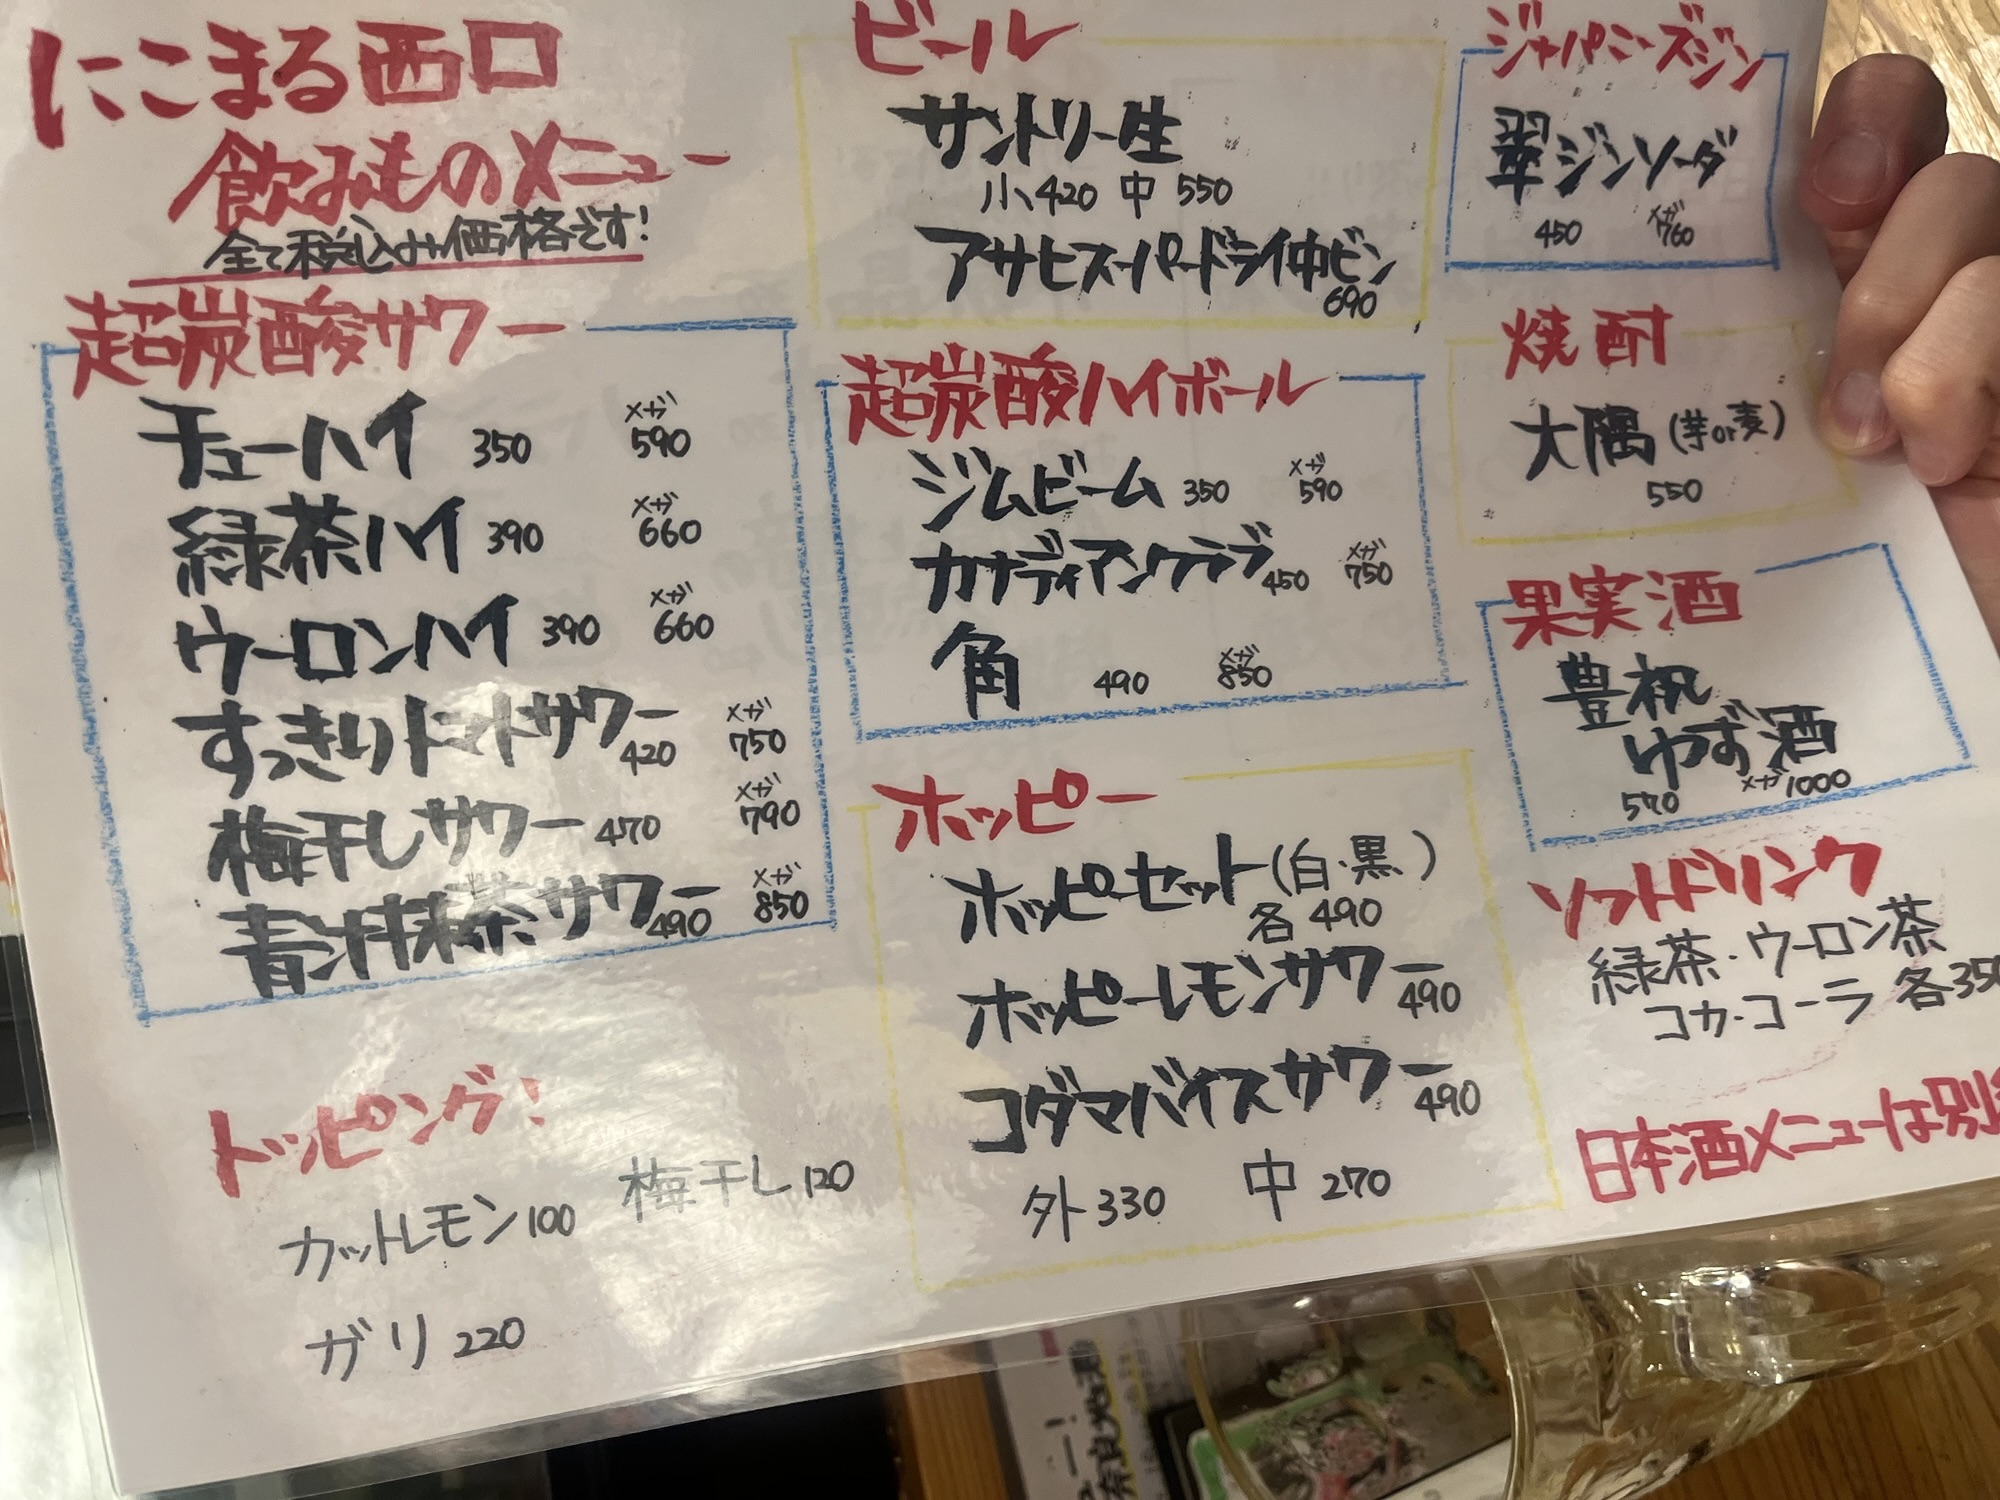 にこまる西口
飲みものメニュー
全て税込み価格です!
超炭酸サワー
チューハイ 350 メガ 590
緑茶ハイ 390 メガ 660
ウーロンハイ 390 メガ 660
すっきりトマトサワー 420 メガ 750
梅干しサワー 470 メガ 790
青汁抹茶サワー 490 メガ 850
トッピング:
カットレモン100 梅干し120
ガリ 220
ビール
サントリー生
小420 中 550
アサヒスーパードライ中ビン
690
超炭酸ハイボール
ジムビーム 350 メガ 590
カナディアンクラブ 450 メガ 750
角 490 メガ 850
ホッピー
ホッピーセット(白・黒)
各 490
ホッピーレモンサワー 490
コダマバイスサワー 490
外 330 中 270
ジャパニーズジン
翠ジンソーダ
450 メガ 760
焼酎
大隅(芋or麦)
550
果実酒
豊祝
ゆず酒
570 メガ1000
ソフトドリンク
緑茶・ウーロン茶
コカ・コーラ 各350
日本酒メニューは別
奈良地酒